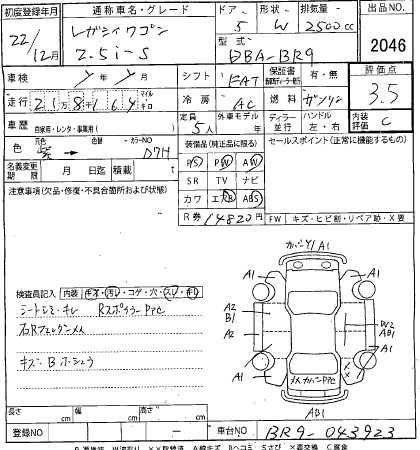 初度登録年月 通称車名・グレード ドア 形状 排気量 出品NO
22/12月 レガシィワゴン 5 W 2500cc
2.5i-S 型式 DBA-BR9 2046
車検 シフト FAT 有・無 評価点
走行 21万8千164キロ マイル 冷房 AC 燃料 ガソリン 3.5
車歴 自家用・レンタ・事業用( ) 定員 5人 外車モデル ディーラー 並行 ハンドル 左・右 内装評価 C
色 元色 紫 色替 カラーNO D7H 装備品(純正品に限る) セールスポイント(正常に機能するもの)
PS PW AW
名義変更期限 月 日迄 積載 t SR TV ナビ
注意事項(欠品・修復・不具合箇所および状態) カワ エアB ABS
R券 14820円 FW キズ・ヒビ割・リペア跡・X要
カハンリA1
A1 A1
検査員記入 内装 キオ・汚レ・コゲ・穴・スレ・キレ
シートシミ・キレ RスポイラーPtc A2 B1
石RフェンダーメメA2 W2 AB1
キズ・Bホショウ A1 A1
XXカハーンPtc
AB1
長さ cm 幅 cm 高さ cm
登録NO 車台NO BR9-043923